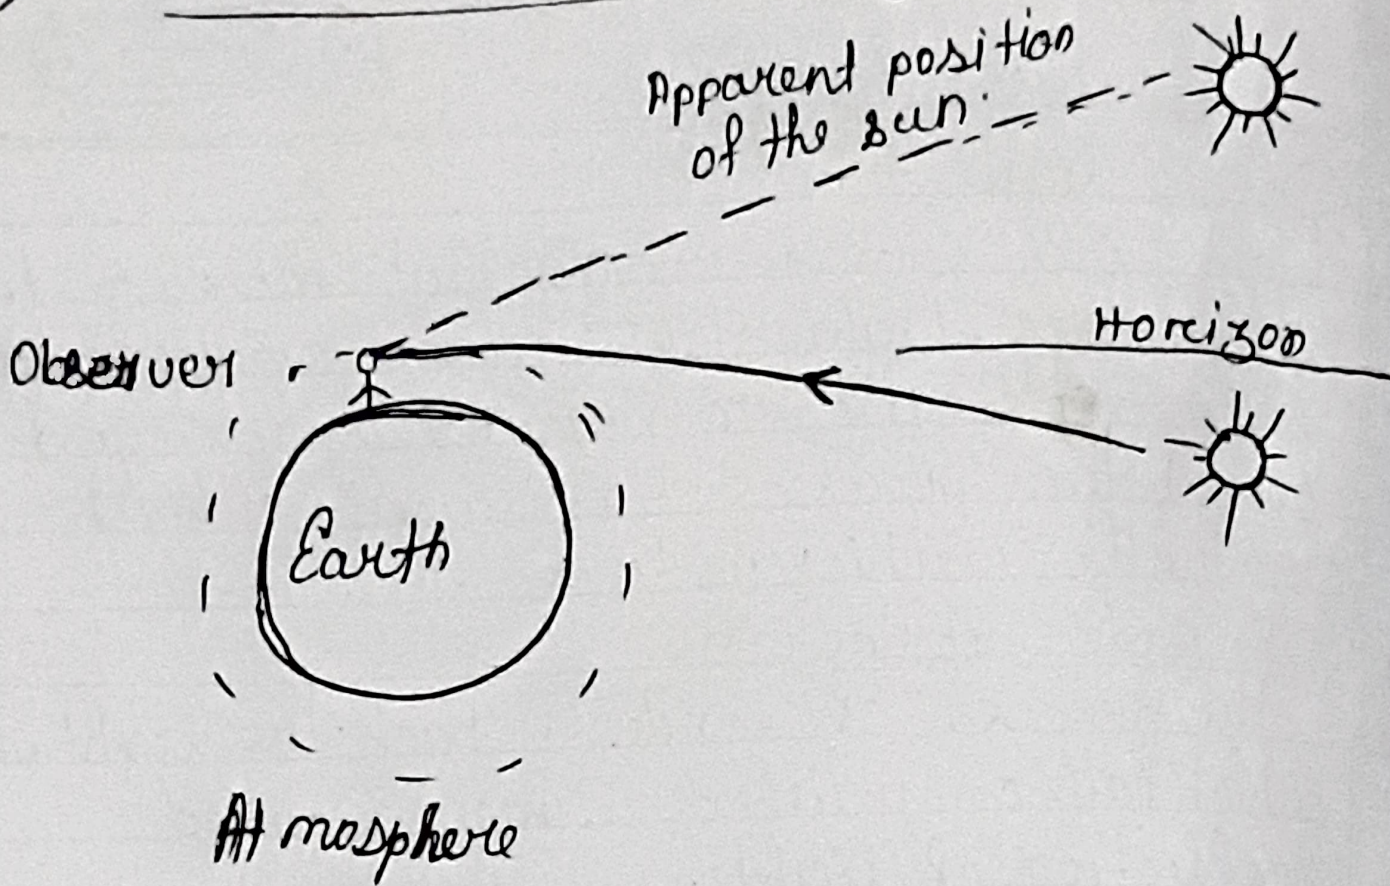 Apparent position
of the sun.
Horeizon
Observer
Earth
Atmosphere